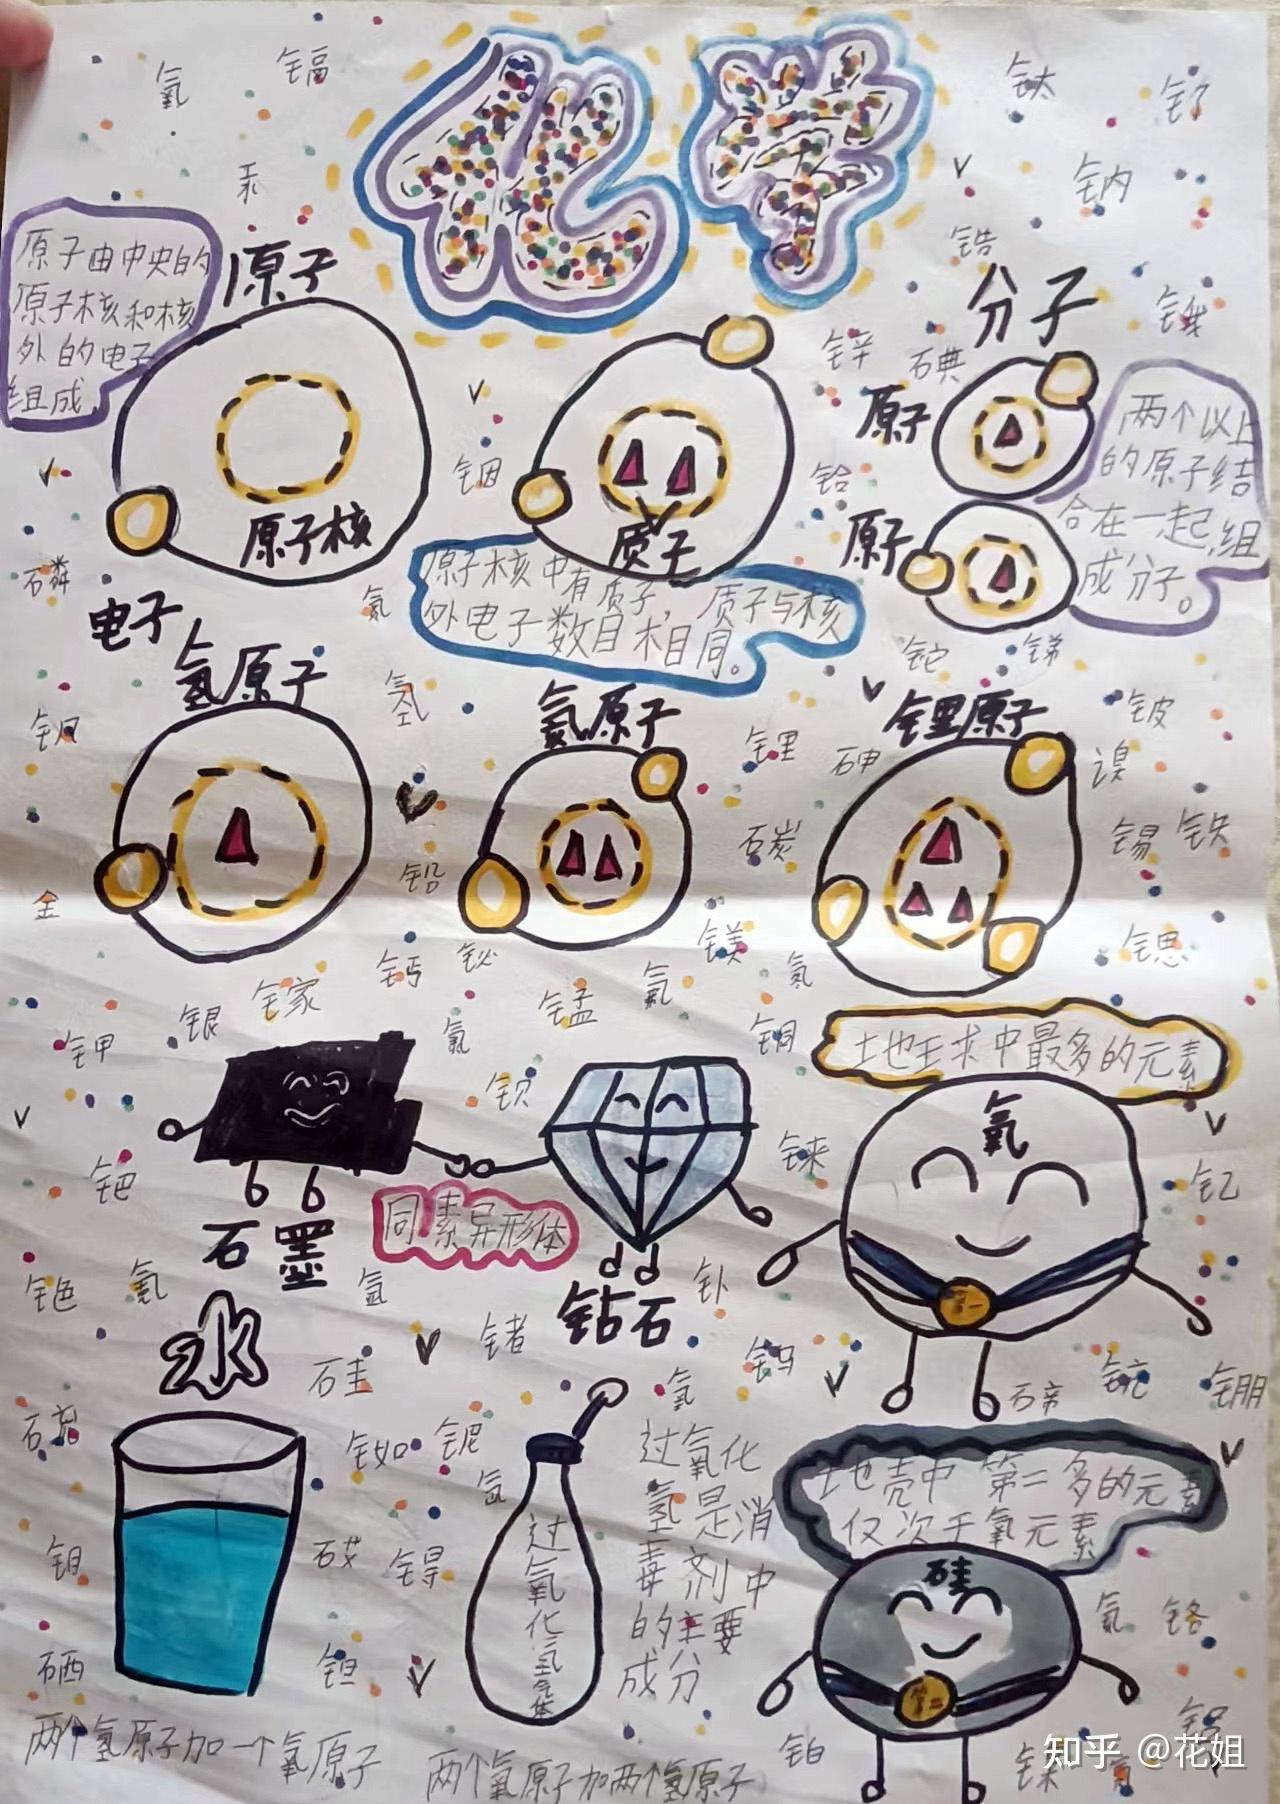 化学
氧
镉
汞
钛
钌
钠
锆
锇
原子由中央的
原子核和核
外的电子
组成
原子
原子核
电子
质子
原子核中有质子，质子与核
外电子数目相同。
分子
原子
原子
两个以上
的原子结
合在一起，组
成分子。
锌
碘
铟
铪
磷
氮
铊
锑
氢
钡
氢原子
氦原子
锂原子
锂
砷
铍
溴
碳
锡
铁
铅
金
钙
铋
镁
氮
锶
镓
银
锰
氟
钾
氯
铜
钡
铼
钯
钇
土也王求中最多的元素
氧
第一
石墨
同素异形体
钻石
铯
氪
氙
钋
锗
钨
水
硅
硫
铷
铌
氢
钼
锝
硒
钽
过氧化氢气体
过氧化
氢是消
毒剂中
的主要
成分
土也壳中第二多的元素
仅次于氧元素
硅
第二
氡
铬
铂
铝
两个氢原子加一个氧原子
两个氧原子加两个氢原子
知乎 @花姐